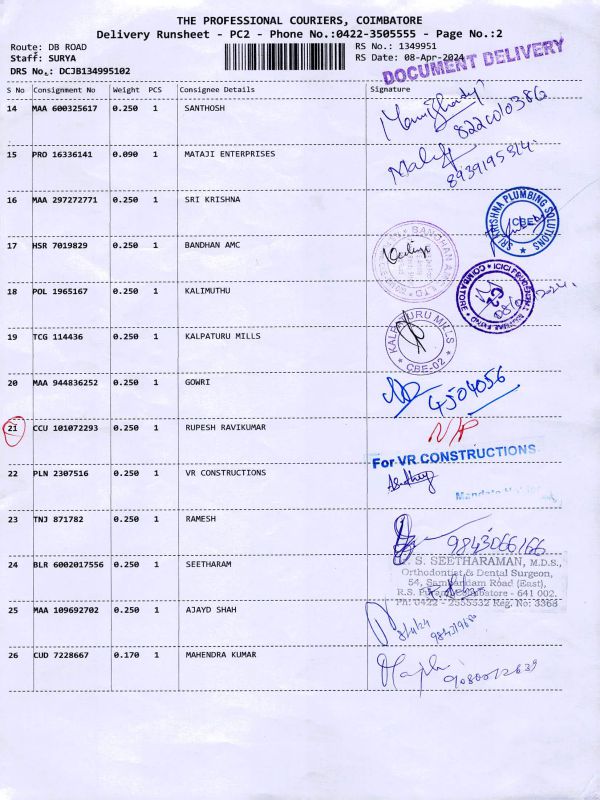 THE PROFESSIONAL COURIERS, COIMBATORE
Delivery Runsheet - PC2 - Phone No.:0422-3505555 - Page No.:2
Route: DB ROAD
Staff: SURYA
DRS No.: DCJB134995102
RS No.: 1349951
RS Date: 08-Apr-2024
DOCUMENT DELIVERY
S No Consignment No Weight PCS Consignee Details Signature
14 MAA 600325617 0.250 1 SANTHOSH
15 PRO 16336141 0.090 1 MATAJI ENTERPRISES
8939195314
16 MAA 297272771 0.250 1 SRI KRISHNA
SRI KRISHNA PLUMBING SOLUTIONS
CBE
17 HSR 7019829 0.250 1 BANDHAN AMC
18 POL 1965167 0.250 1 KALIMUTHU
COIMBATORE
19 TCG 114436 0.250 1 KALPATURU MILLS
KALPATURU MILLS
CBE-02
20 MAA 944836252 0.250 1 GOWRI
4504056
21 CCU 101072293 0.250 1 RUPESH RAVIKUMAR N/P
22 PLN 2307516 0.250 1 VR CONSTRUCTIONS
For VR CONSTRUCTIONS
23 TNJ 871782 0.250 1 RAMESH
9843066166
24 BLR 6002017556 0.250 1 SEETHARAM
S. SEETHARAMAN, M.D.S.,
Orthodontist & Dental Surgeon,
54, Sambandam Road (East),
R.S. Puram, Coimbatore - 641 002.
Ph: 0422 - 2555532 Reg. No: 3368
25 MAA 109692702 0.250 1 AJAYD SHAH
8/4/24
26 CUD 7228667 0.170 1 MAHENDRA KUMAR
9080072639